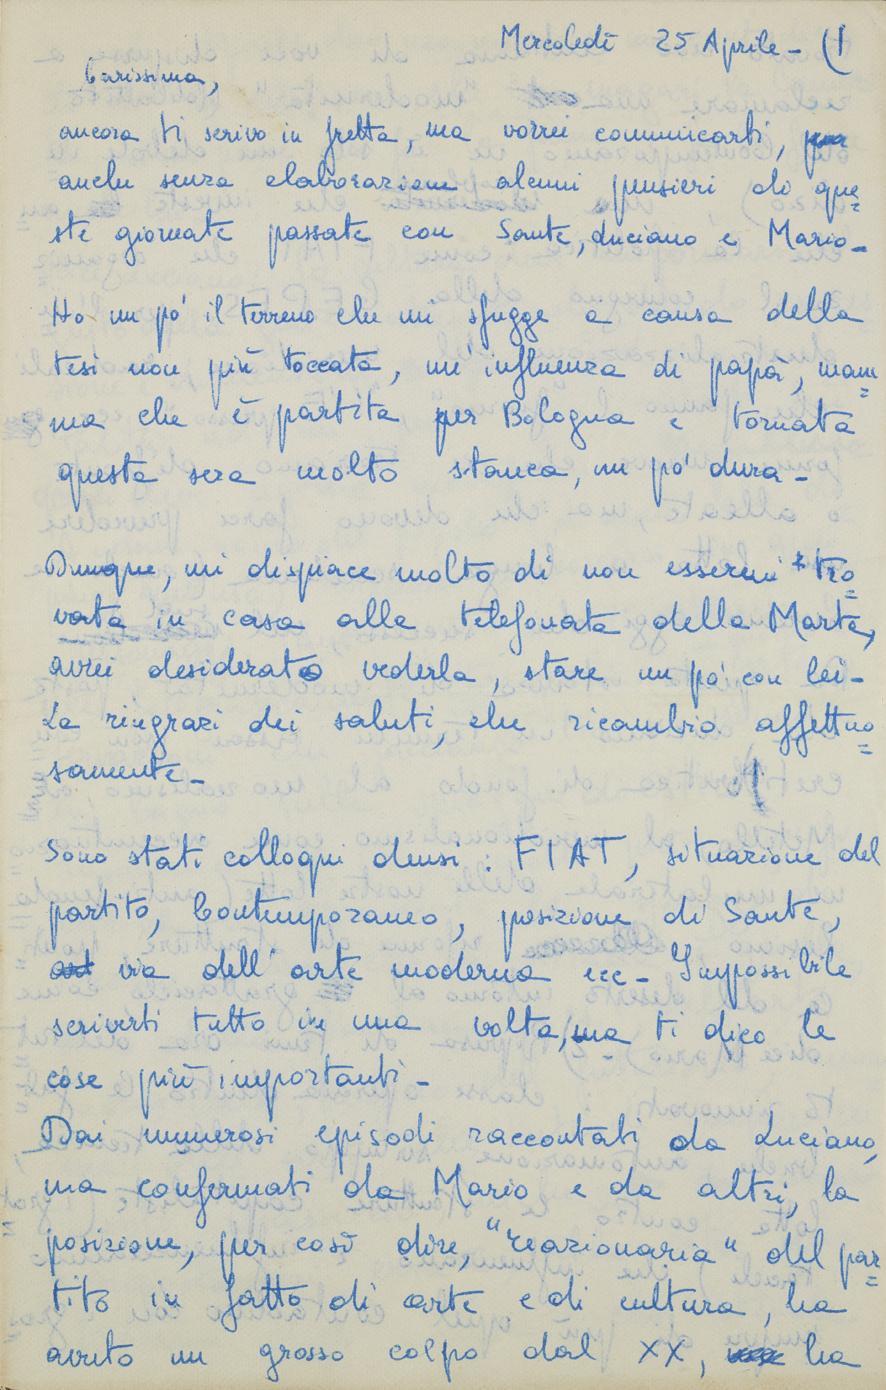 Mercoledì 25 Aprile - (1
Carissima,
ancora ti scrivo in fretta, ma vorrei comunicarti,
anche senza elaborazione alcuni pensieri di que=
ste giornate passate con Sante, Luciano e Mario -
Ho un pò il terreno che mi sfugge a causa della
tesi non più toccata, un'influenza di papà, mam=
ma che è partita per Bologna e tornata
questa sera molto stanca, un pò dura -
Dunque, mi dispiace molto di non essermi tro=
vata in casa alla telefonata della Marta,
avrei desiderato vederla, stare un pò con lei -
La ringrazi dei saluti, che ricambio affettuo=
samente -
Sono stati colloqui densi: FIAT, situazione del
partito, Contemporaneo, posizione di Sante,
via dell'arte moderna ecc - Impossibile
scriverti tutto in una volta, ma ti dico le
cose più importanti -
Dai numerosi episodi raccontati da Luciano,
ma confermati da Mario e da altri, la
posizione, per così dire, "reazionaria" del par=
tito in fatto di arte e di cultura, ha
avuto un grosso colpo dal XX, ha